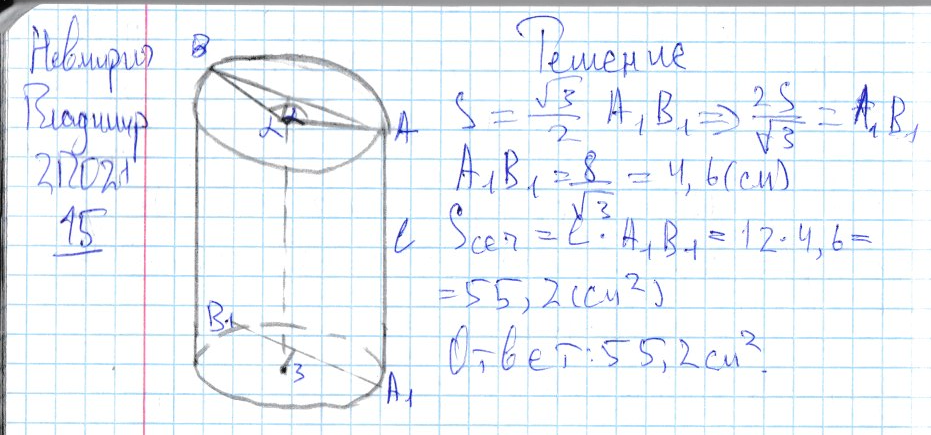 Невмирич
Владимир
2П021
15
B
α
A
ℓ
B₁
3
A₁
Решение
S = √3/2 A₁B₁ ⇒ 2S/√3 = A₁B₁
A₁B₁ = 8/√3 = 4,6(см)
Sсеч = ℓ · A₁B₁ = 12 · 4,6 =
= 55,2(см²)
Ответ: 55,2 см².